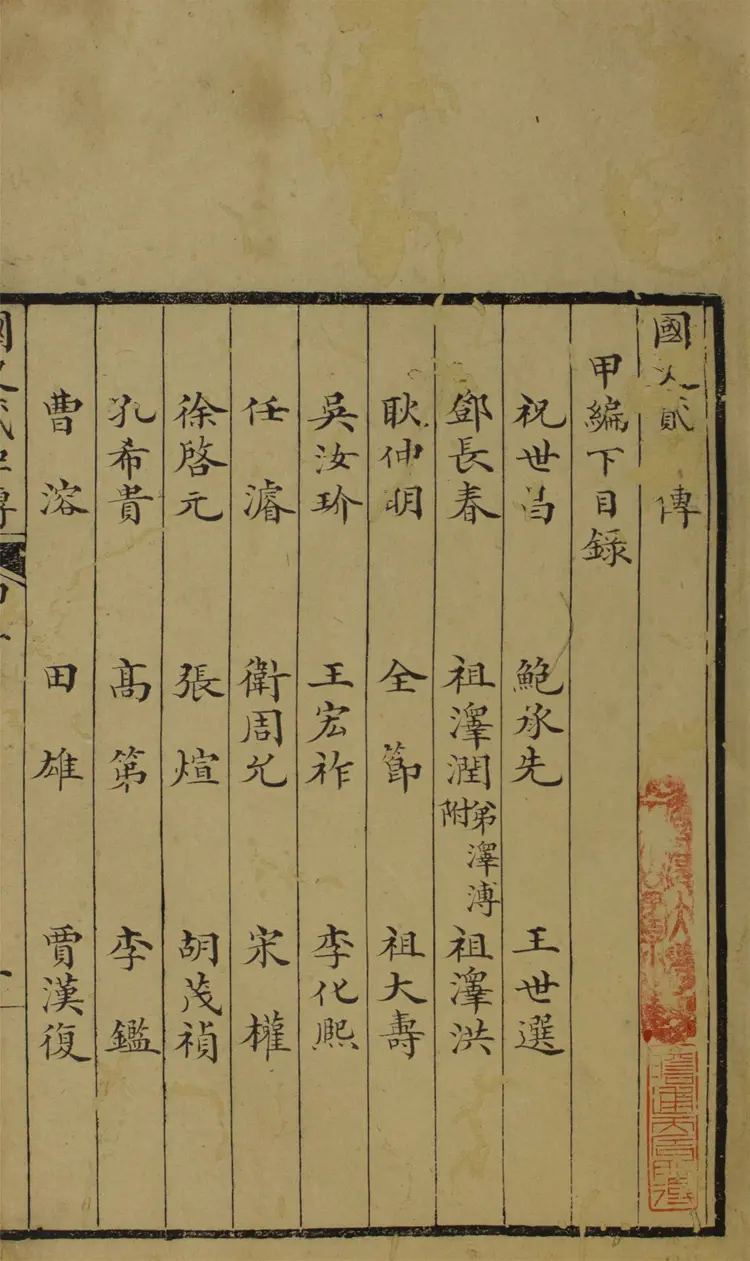 國史貳 傳
甲編下目錄
祝世昌 鮑承先 王世選
鄧長春 祖澤潤弟澤溥附 祖澤洪
耿仲明 全節 祖大壽
吳汝玠 王宏祚 李化熙
任濬 衛周允 宋權
徐啓元 張煊 胡茂禎
孔希貴 高第 李鑑
曹溶 田雄 賈漢復